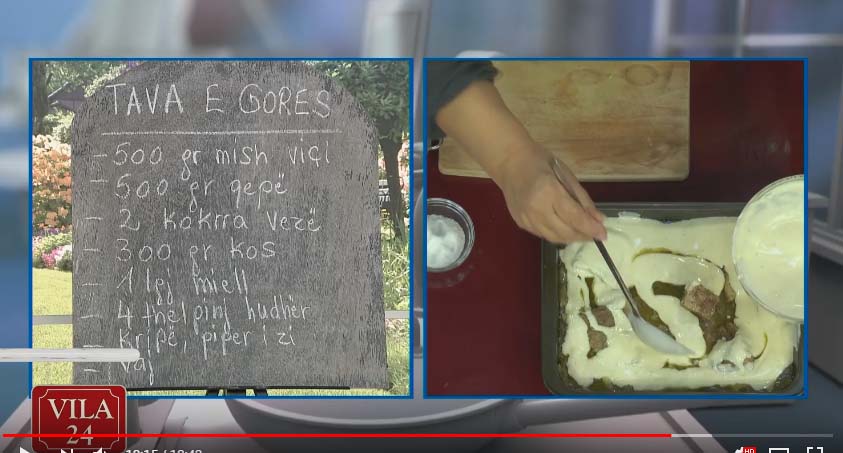 TAVA E GORES
- 500 gr mish viçi
- 500 gr qepë
- 2 kokrra vezë
- 300 gr kos
- 1 lgj miell
- 4 thelpinj hudhër
- kripë, piper i zi
- vaj
VILA
24
HD